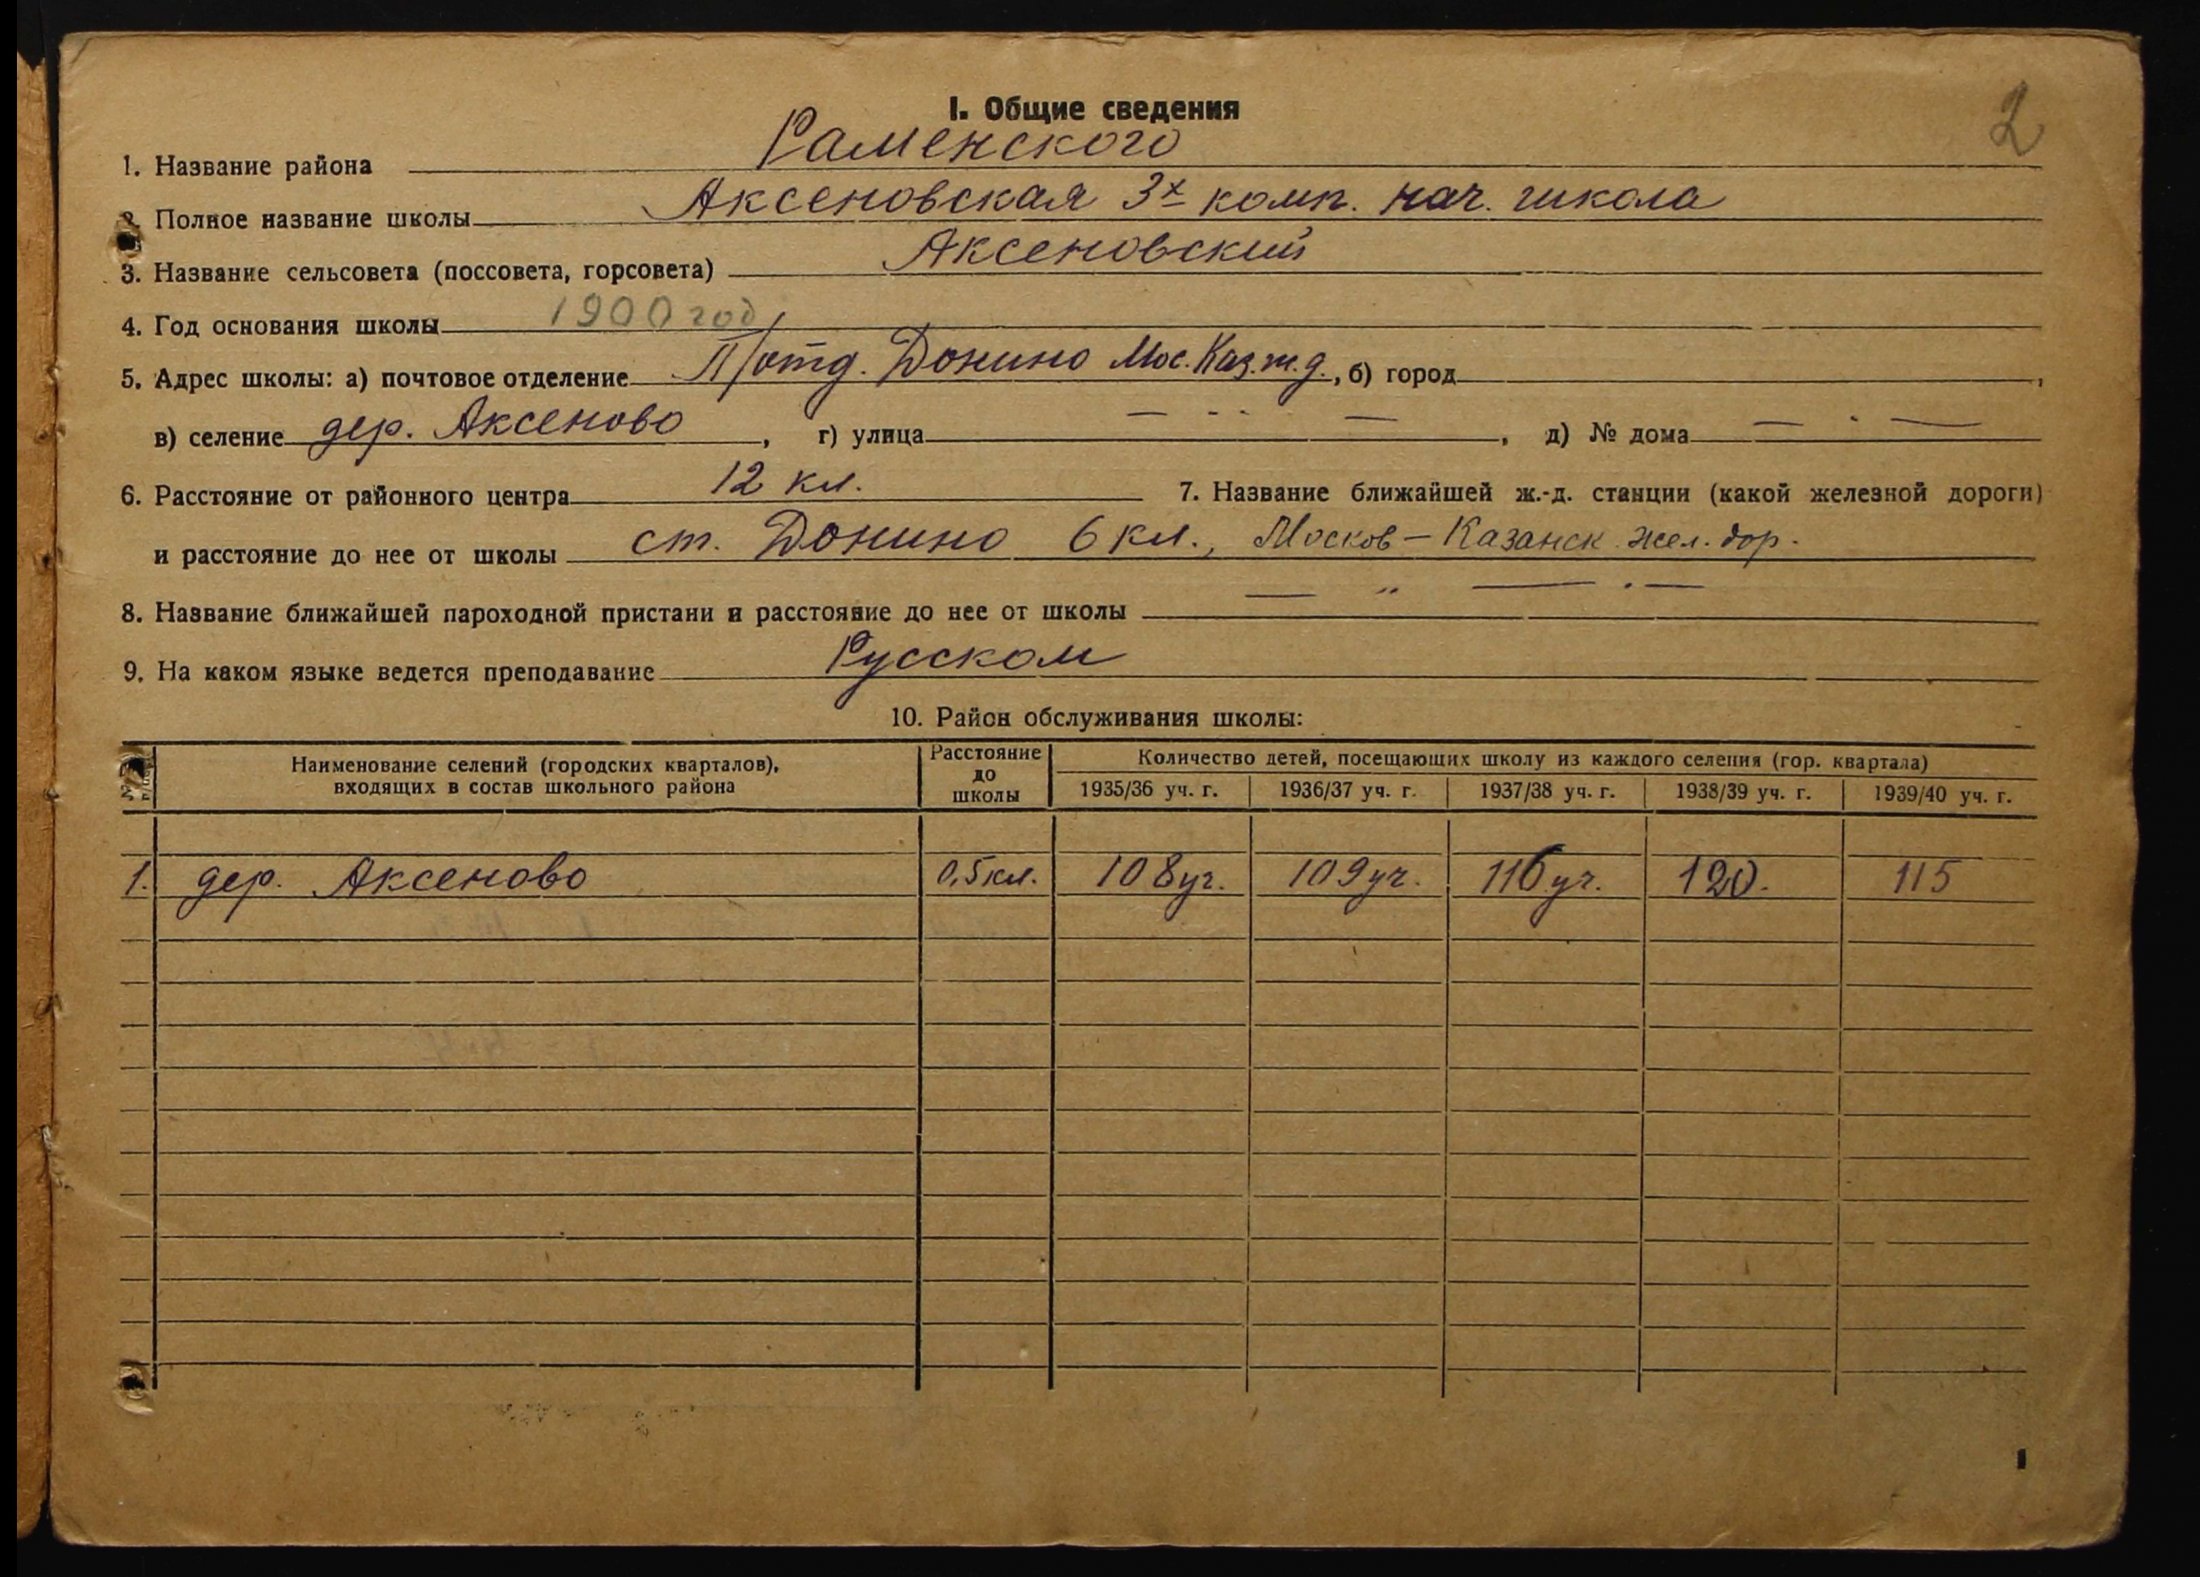 2
I. Общие сведения
1. Название района Раменского
2. Полное название школы Аксеновская 3х комп. нач. школа
3. Название сельсовета (поссовета, горсовета) Аксеновский
4. Год основания школы 1900 год
5. Адрес школы: а) почтовое отделение П/отд. Донино Мос. Каз. ж. д., б) город ,
в) селение дер. Аксеново, г) улица — " —, д) № дома — " —
6. Расстояние от районного центра 12 кл. 7. Название ближайшей ж.-д. станции (какой железной дороги)
и расстояние до нее от школы ст. Донино 6 кл., Москов – Казанск. жел. дор.
8. Название ближайшей пароходной пристани и расстояние до нее от школы — " — " —
9. На каком языке ведется преподавание Русском
10. Район обслуживания школы:
Наименование селений (городских кварталов), входящих в состав школьного района
Расстояние до школы
Количество детей, посещающих школу из каждого селения (гор. квартала)
1935/36 уч. г. 1936/37 уч. г. 1937/38 уч. г. 1938/39 уч. г. 1939/40 уч. г.
1. дер. Аксеново 0,5 кл. 108 уч. 109 уч. 116 уч. 120. 115
1